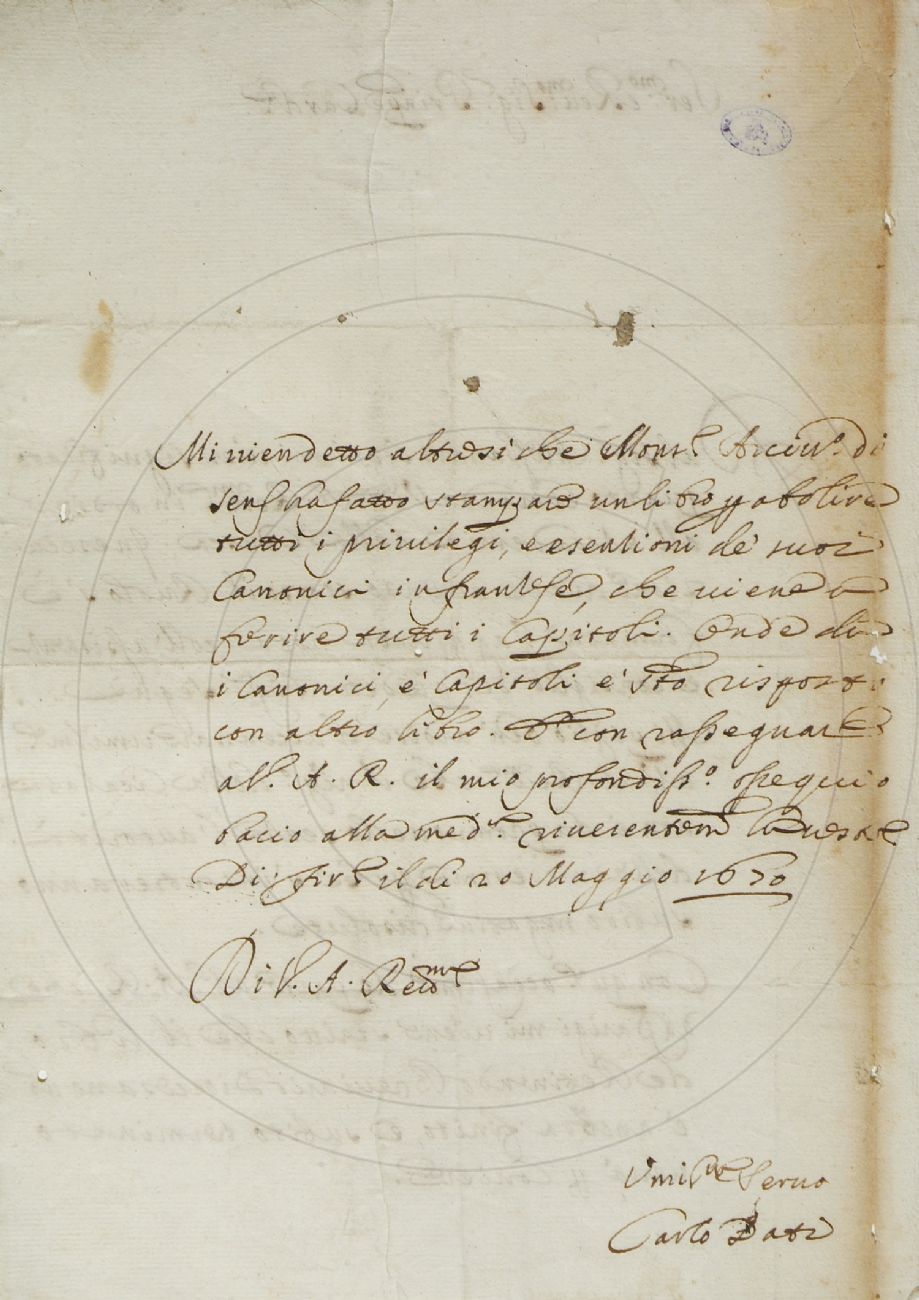 Mi vien detto altresì che Mons.r Arciv.o di
Sens ha fatto stampare un libro p abolire
tutti i privilegi, e esentioni de' suoi
Canonici in franzese, che viene a
ferire tutti i Capitoli. Onde di
i Canonici, e Capitoli è stato risposto
con altro libro. con rassegnare
a V. A. R. il mio profondiss.o ossequio
bacio alla med.a riverentem.te la veste
Di Fir.e il dì 20 Maggio 1670
Di V. A. Rev.ma
Umiliss.mo Servo
Carlo Dati